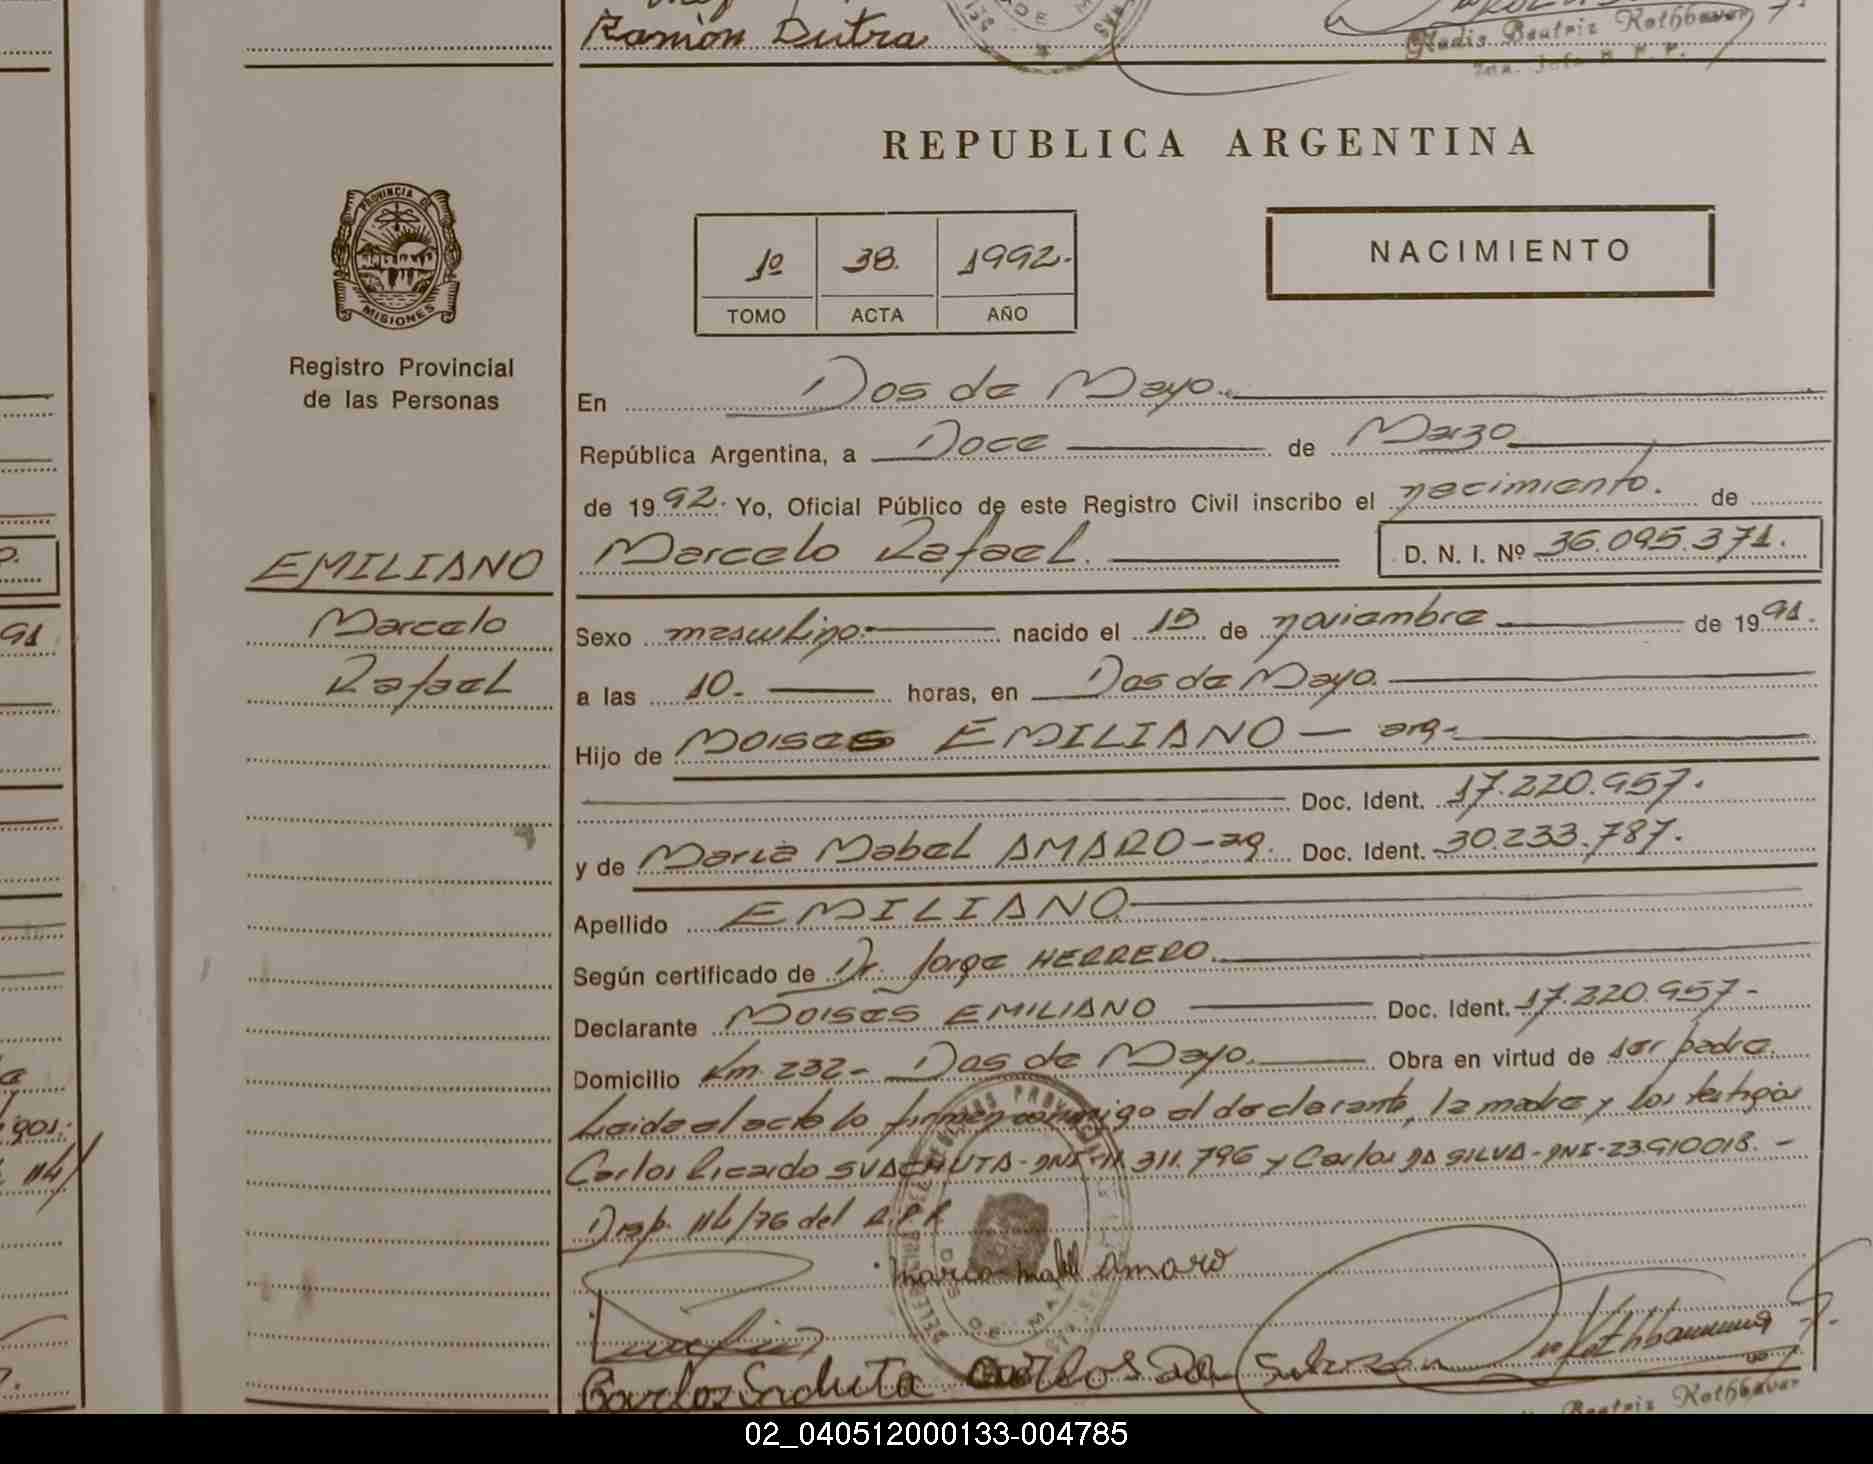 Ramón Dutra
Gladis Beatriz Rothbauer
REPUBLICA ARGENTINA
PROVINCIA DE
MISIONES
Registro Provincial
de las Personas
1º 38. 1992.
TOMO ACTA AÑO
NACIMIENTO
En Dos de Mayo.
República Argentina, a Doce de Marzo
de 1992. Yo, Oficial Público de este Registro Civil inscribo el nacimiento. de
EMILIANO
Marcelo
Rafael
Marcelo Rafael. D. N. I. Nº 36.095.371.
Sexo masculino. nacido el 15 de noviembre de 1991.
a las 10. horas, en Dos de Mayo.
Hijo de Moises EMILIANO - arg.
Doc. Ident. 17.220.957.
y de Maria Mabel AMARO - arg. Doc. Ident. 30.233.787.
Apellido EMILIANO
Según certificado de Dr. Jorge HERRERO.
Declarante Moises EMILIANO Doc. Ident. 17.220.957-
Domicilio Km. 232- Dos de Mayo. Obra en virtud de ser padre.
Leida el acta lo firman conmigo el declarante, la madre y los testigos
Carlos Ricardo SVACHUTA - DNI-11.311.796 y Carlos DA SILVA - DNI-23.910018. -
Disp. 114/76 del R.P.P.
Maria Mabel Amaro
Carlos Da Silva
Beatriz Rothbauer
02_040512000133-004785